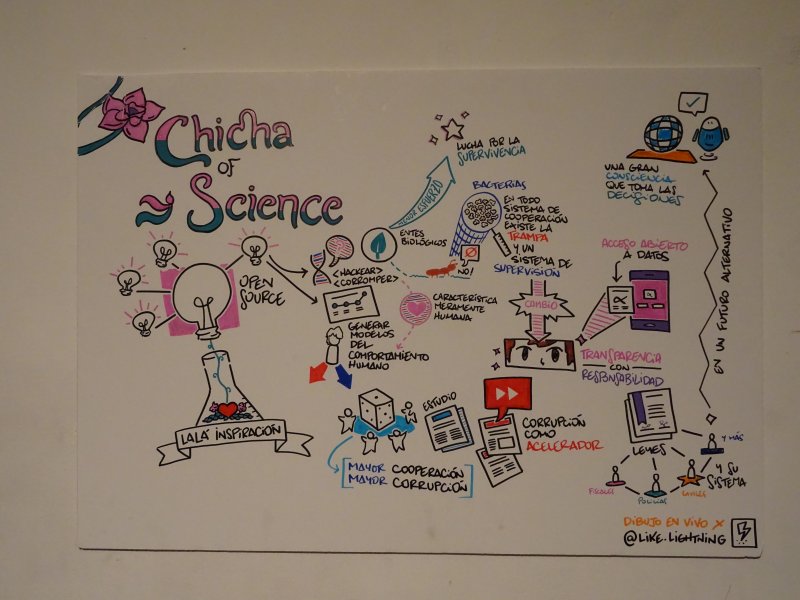 Chicha
OF
Science
OPEN
SOURCE
LALA INSPIRACIÓN
<HACKEAR>
<CORROMPER>
GENERAR
MODELOS
DEL
COMPORTAMIENTO
HUMANO
ENTES
BIOLÓGICOS
MENOR ESFUERZO
LUCHA POR LA
SUPERVIVENCIA
BACTERIAS
NO!
CARACTERÍSTICA
MERAMENTE
HUMANA
EN TODO
SISTEMA DE
COOPERACIÓN
EXISTE LA
TRAMPA
Y UN
SISTEMA DE
SUPERVISIÓN
CAMBIO
ACCESO ABIERTO
A DATOS
TRANSPARENCIA
CON
RESPONSABILIDAD
ESTUDIO
MAYOR COOPERACIÓN
MAYOR CORRUPCIÓN
CORRUPCIÓN
COMO
ACELERADOR
LEYES
Y SU
SISTEMA
FISCALES
POLICÍAS
CIVILES
Y MÁS
EN UN FUTURO ALTERNATIVO
UNA GRAN
CONSCIENCIA
QUE TOMA LAS
DECISIONES
DIBUJO EN VIVO X
@LIKE.LIGHTNING